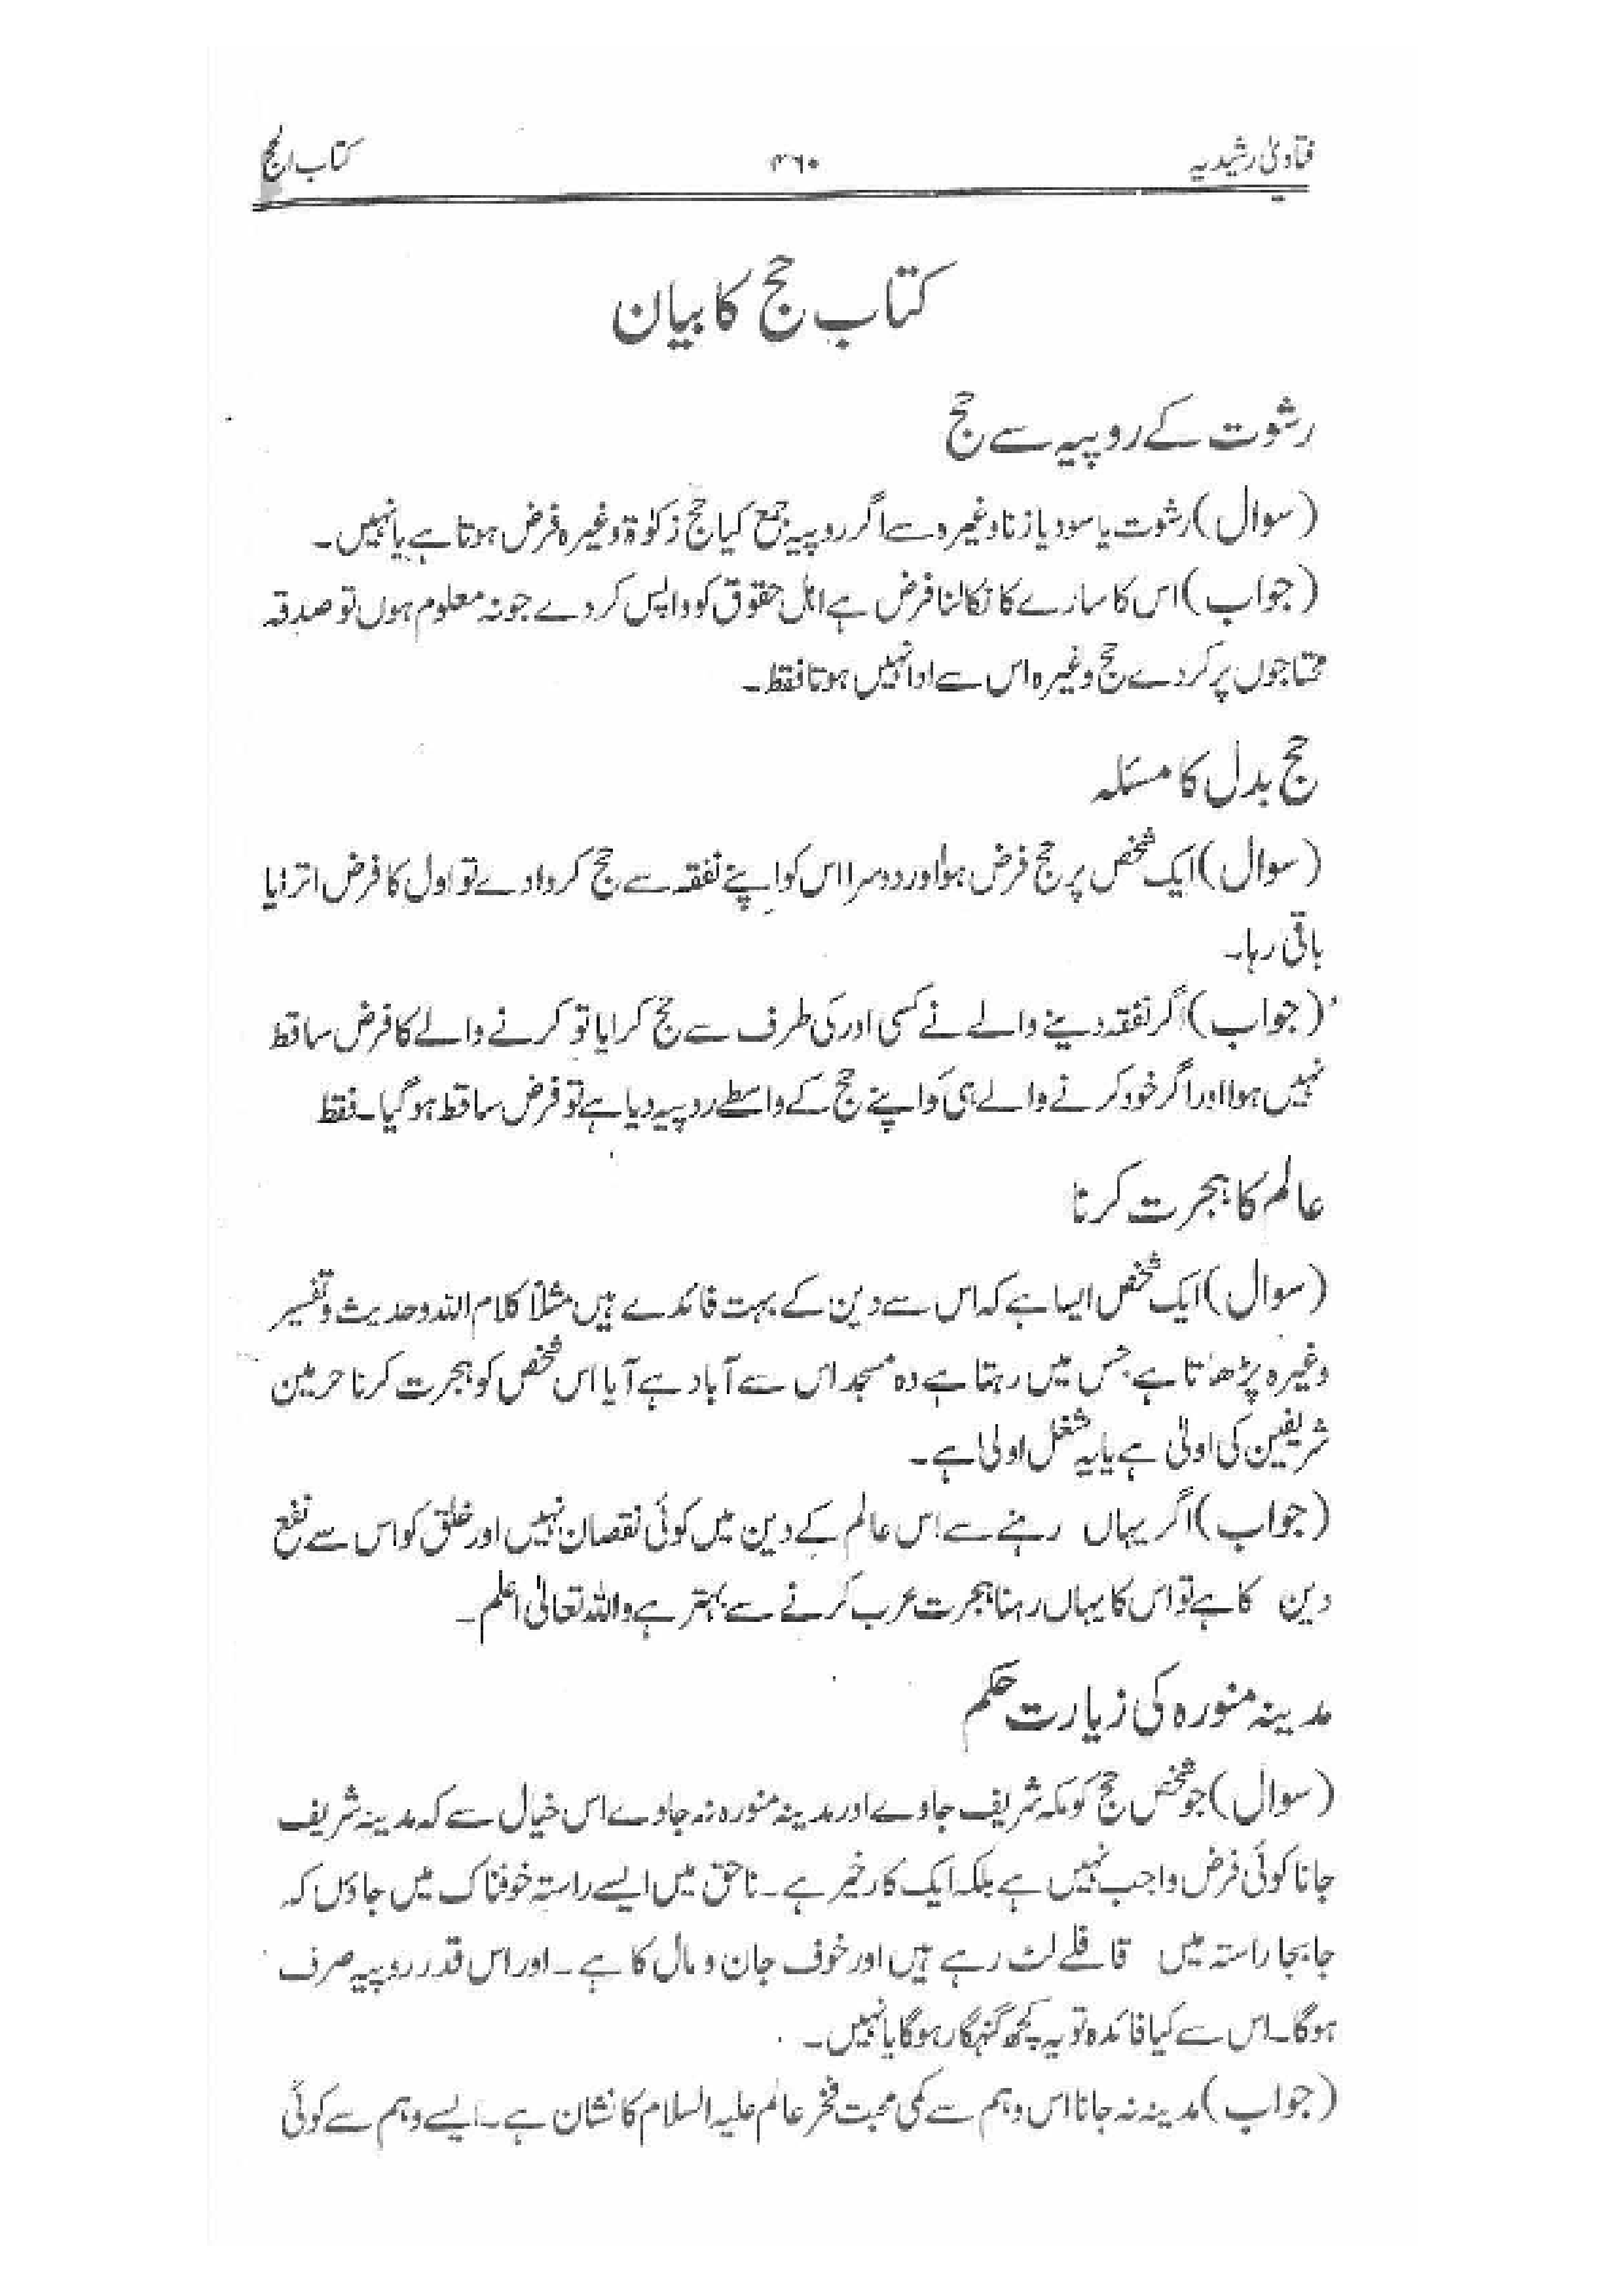 فتاویٰ رشیدیہ
۴۶۰
کتاب الحج
کتاب حج کا بیان
رشوت کے روپیہ سے حج
(سوال) رشوت یا سود یا زنا وغیرہ سے اگر روپیہ جمع کیا حج زکوٰۃ وغیرہ فرض ہوتا ہے یا نہیں۔
(جواب) اس کا سارے کا نکالنا فرض ہے اہل حقوق کو واپس کر دے جو نہ معلوم ہوں تو صدقہ
محتاجوں پر کر دے حج وغیرہ اس سے ادا نہیں ہوتا فقط۔
حج بدل کا مسئلہ
(سوال) ایک شخص پر حج فرض ہوا اور دوسرا اس کو اپنے نفقہ سے حج کروا دے تو اول کا فرض اترا یا
باقی رہا۔
(جواب) اگر نفقہ دینے والے نے کسی اور کی طرف سے حج کرایا تو کرنے والے کا فرض ساقط
نہیں ہوا اور اگر خود کرنے والے ہی کو اپنے حج کے واسطے روپیہ دیا ہے تو فرض ساقط ہو گیا۔ فقط
عالم کا ہجرت کرنا
(سوال) ایک شخص ایسا ہے کہ اس سے دین کے بہت فائدے ہیں مثلاً کلام اللہ وحدیث وتفسیر
وغیرہ پڑھاتا ہے جس میں رہتا ہے وہ مسجد اس سے آباد ہے آیا اس شخص کو ہجرت کرنا حرمین
شریفین کی اولیٰ ہے یا یہ شغل اولیٰ ہے۔
(جواب) اگر یہاں رہنے سے اس عالم کے دین میں کوئی نقصان نہیں اور خلق کو اس سے نفع
دین کا ہے تو اس کا یہاں رہنا ہجرت عرب کرنے سے بہتر ہے واللہ تعالیٰ اعلم۔
مدینہ منورہ کی زیارت حکم
(سوال) جو شخص حج کو مکہ شریف جاوے اور مدینہ منورہ نہ جاوے اس خیال سے کہ مدینہ شریف
جانا کوئی فرض واجب نہیں ہے بلکہ ایک کار خیر ہے۔ ناحق میں ایسے راستہ خوفناک میں جاؤں کہ
جا بجا راستہ میں قافلے لٹ رہے ہیں اور خوف جان و مال کا ہے۔ اور اس قدر روپیہ صرف
ہوگا۔ اس سے کیا فائدہ تو یہ کچھ گنہگار ہوگا یا نہیں۔
(جواب) مدینہ نہ جانا اس وہم سے کمی محبت فخر عالم علیہ السلام کا نشان ہے۔ ایسے وہم سے کوئی